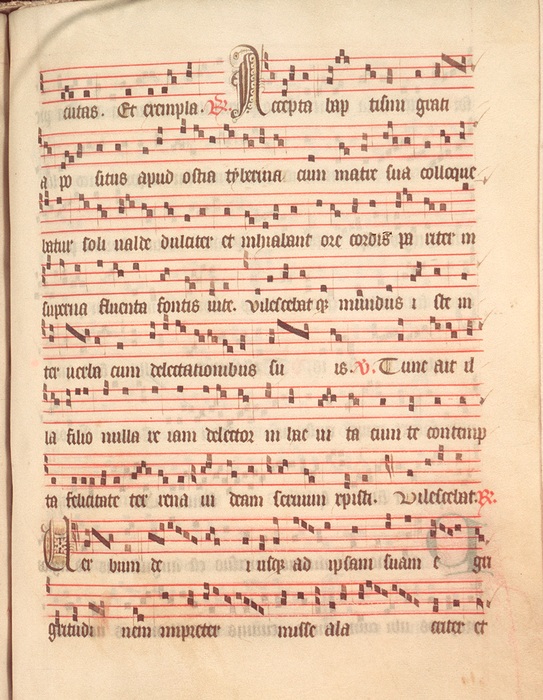 citas. Et exempla. ℟. Accepta bap tismi grati
a po situs apud ostia tyberina cum matre sua colloque
batur soli ualde dulciter et inhiabant ore cordis pa riter in
superna fluenta fontis uite. vilescebat qz mundus i ste in
ter uerba cum delectationibus su is. ℣. Tunc ait il
la filio nulla re iam delector in hac ui ta cum te contemp
ta felicitate ter rena ui deam seruum xpisti. Vilescebat. ℟.
Uer bum de i usqz ad ipsam suam e gri
gritudi nem impreter misse ala criter et